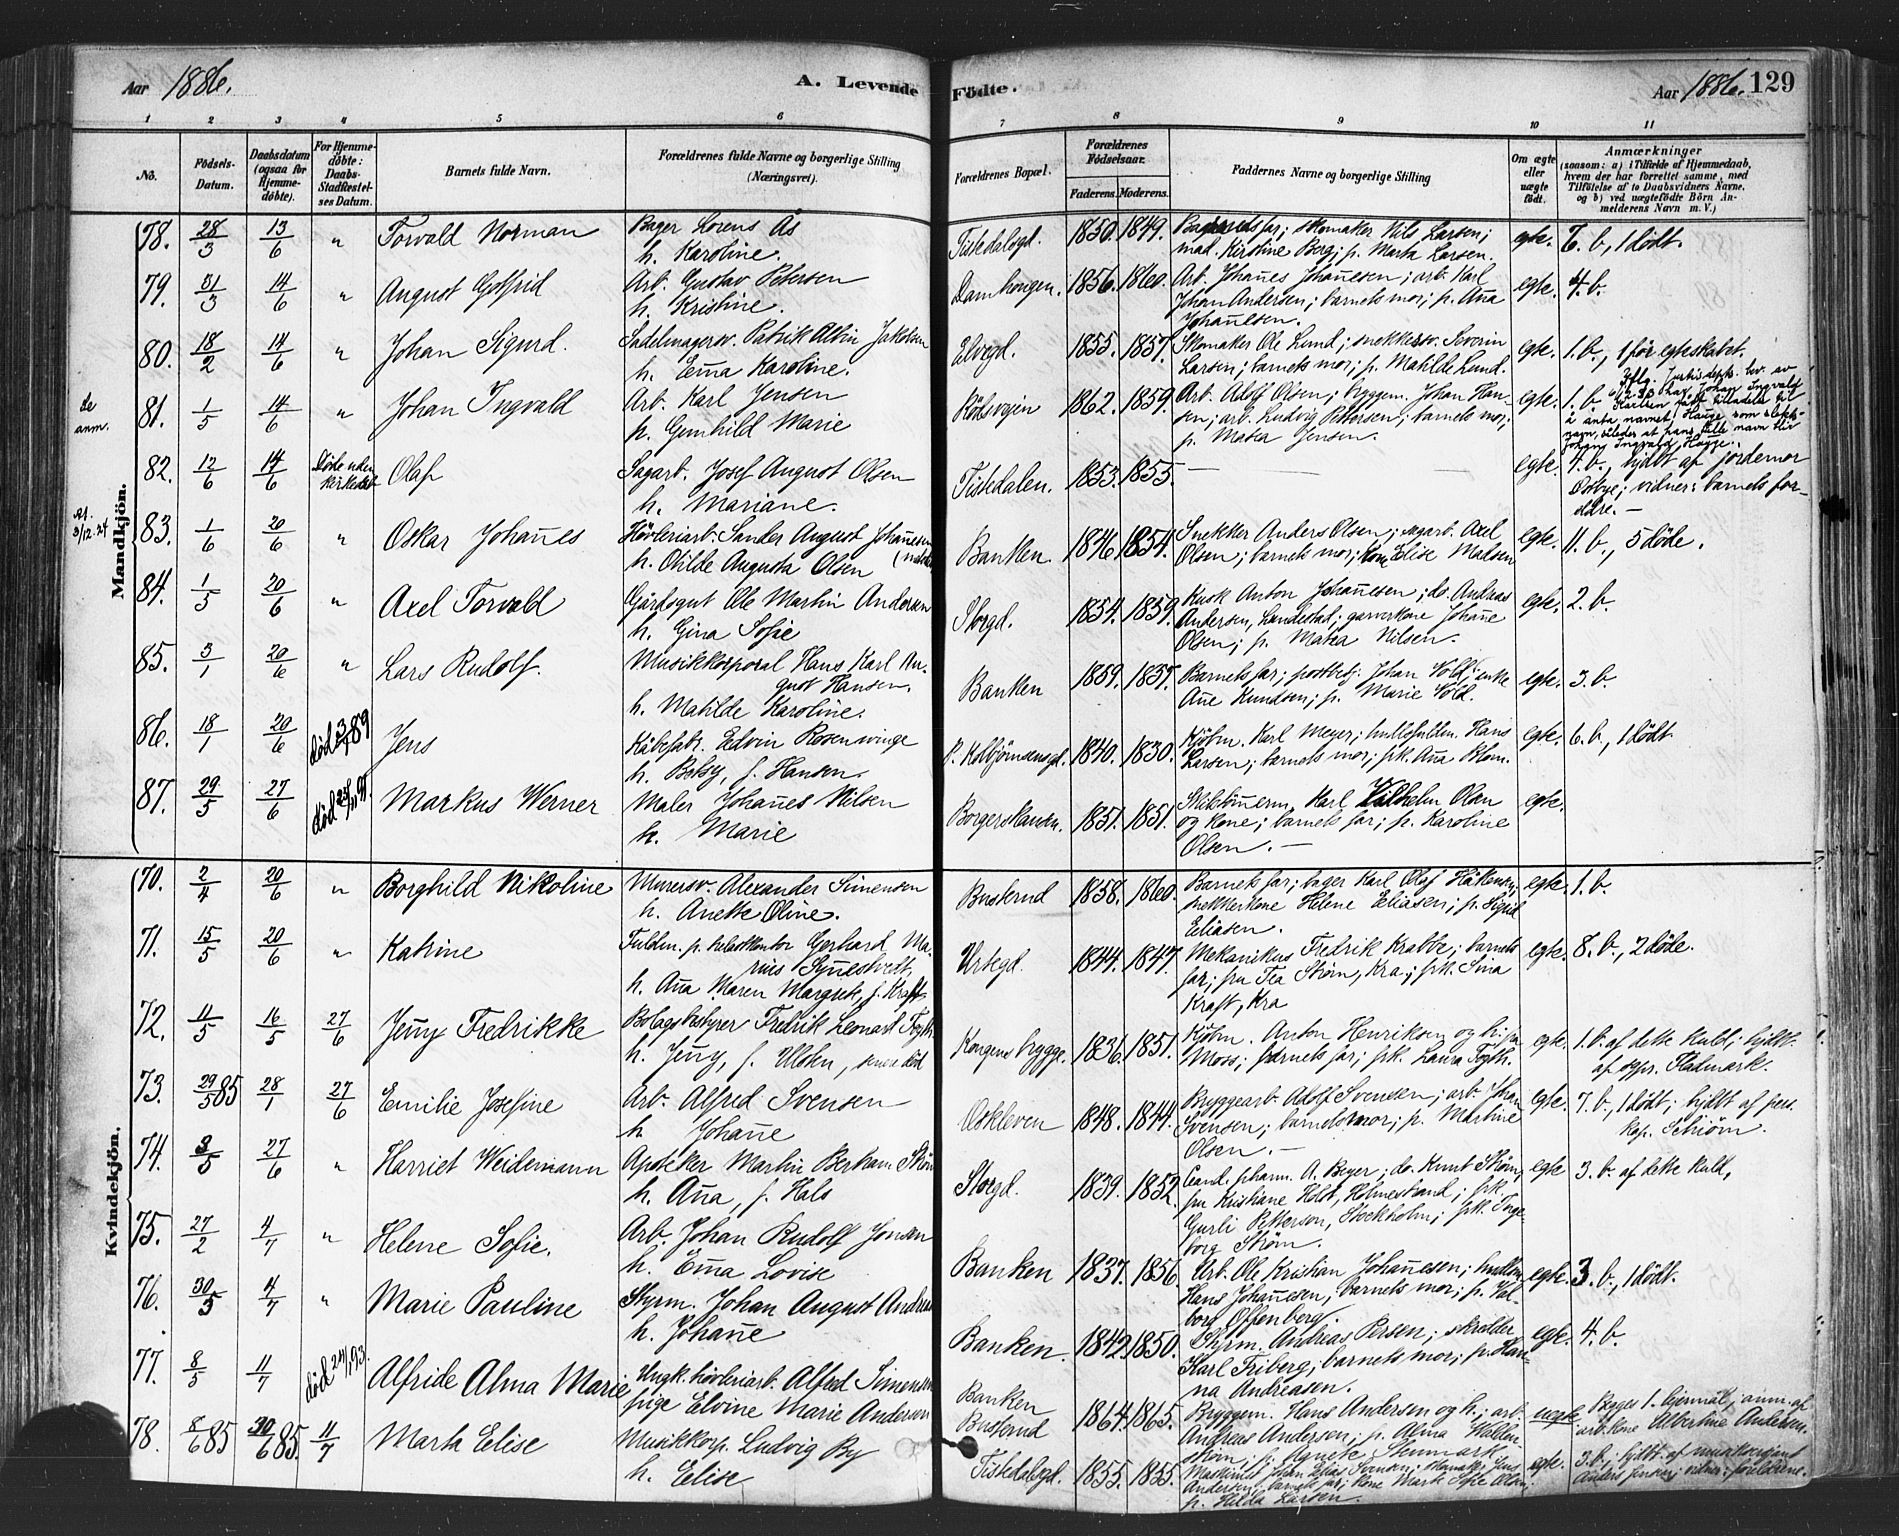 Aar 1886.
A. Levende Födte.
Aar 1886. 129
1 2 3 4 5 6 7 8 9 10 11
No.
Födsels-Datum.
Daabsdatum (ogsaa for Hjemme-döbte).
For Hjemme-döbte: Daabs-Stadfæstel-ses Datum.
Barnets fulde Navn.
Forældrenes fulde Navne og borgerlige Stilling (Næringsvei).
Forældrenes Bopæl.
Forældrenes Födselsaar.
Faderens. Moderens.
Faddernes Navne og borgerlige Stilling
Om ægte eller uægte födt.
Anmærkninger
(saasom: a) i Tilfælde af Hjemmedaab, hvem der har forrettet samme, med Tilföielse af to Daabsvidners Navne, og b) ved uægtefödte Börn An-melderens Navn m. V.)
Mandkjön.
78. 28/3 13/6 " Torvald Norman
Bager Lorens Ås
h. Karoline.
Tistedalsgd. 1850. 1849.
Barnets far; skomaker Nils Larsen;
mad. Kirstine Berg; p. Marta Larsen.
egte. 7. b., 1 dødt.
79. 31/3 14/6 " August Gotfrid
Arb. Gustav Petersen
h. Kristine.
Damhougen. 1856. 1860.
Arb. Johanes Johanesen; arb. Karl
Johan Andersen; barnets mor; p. Ana
Johanesen.
egte. 4. b.
80. 18/2 14/6 " Johan Sigurd.
Sadelmagersv. Patrik Albin Jakobsen
h. Ema Karoline.
Elvegd. 1855. 1857.
Skomaker Ole Lund; snekkersv. Severin
Larsen; barnets mor; p. Matilde Lund.
egte. 1. b., 1 før egteskabet.
81. 1/5 14/6 " Johan Ingvald
Arb. Karl Jensen
h. Gunhild Marie
1862. 1859.
Arb. Adolf Olsen; byggem. Johan Han-
sen; arb. Ludvig Petersen; barnets mor;
p. Matea Jensen.
egte. 1. b.
Johan Ingvald
å anta navnet Hauge som slekts-
navn, således at hans fulle navn blir
Johan Ingvald Hauge.
82. 12/6 14/6 Olaf
Sagarb. Josef August Olsen
h. Mariane.
Tistedalen. 1853. 1855.
egte. 7. b., hjdbt af jordemor
Østbye; vidner: barnets for-
ældre. —
3/12.24
83. 1/6 20/6 " Oskar Johanes
Høvleriarb. Sander August Johanesen
h. Otilde Augusta Olsen
Banken. 1846. 1854.
Snekker Anders Olsen; sagarb. Axel
Olsen; barnets mor; kone Elise Madsen
egte. 11. b., 5 døde.
84. 1/5 20/6 " Axel Torvald
Gårdsgut Ole Martin Andersen
h. Gina Sofie
Storgd. 1854. 1859.
Kusk Anton Johanesen; do. Andreas
Andersen, Sandestad; garverkone Johane
Olsen; p. Matea Nilsen.
egte. 2. b.
85. 3/1 20/6 " Lars Rudolf.
Musikkorporal Hans Karl Au-
gust Hansen.
h. Matilde Karoline.
Banken 1859. 1857.
Barnets far; postbetj. Johan Vold; enke
Ane Knudsen; p. Marie Vold.
egte. 3. b.
86. 18/1 20/6 død 89 Jens
Kåbefabr. Edvin Rosenvinge
h. Betsy, f. Hansen.
P. Kolbjørnsensgd. 1840. 1850.
Kjøbm. Karl Meyer; Hans
Larsen; barnets mor; frk. Ana Blom.
egte. 6. b., 1 dødt
87. 29/5 27/6 død Markus Werner
Maler Johanes Nilsen
h. Marie
Borgerskansen. 1851. 1851.
Karl Vilhelm Olsen
og kone; barnets far; p. Karoline
Olsen. —
egte.
Kvindekjön.
70. 2/4 20/6 " Borghild Nikoline
Murersv. Alexander Simensen
h. Anette Oline.
Busterud 1858. 1860.
Barnets far; bager Karl Olaf Håkensen;
snekkerkone Helene Eliasen; p. Sigrid
Eliasen.
egte. 1. b.
71. 15/5 20/6 " Katrine
Gerhard Ma-
rius Synestvedt,
h. Ana Maren Margrete, f. Kraft.
Urtegd. 1844. 1847.
Mekanikus Fredrik Krabbe; barnets
far; fru Tea Strøm, Kra.; frk. Sina
Kraft, Kra
egte. 8. b., 2 døde.
72. 11/5 16/5 27/6 Jeny Fredrikke
Bolagsbestyrer Fredrik Leonard Fayth
h. Jeny, f. Ulsten,
Kongens brygge. 1836. 1851.
Kjøbm. Anton Henriksen og h. fra
Moss; barnets far; frk. Laura Fayth.
egte. 1. b. af dette kuld; hjdbt.
af sgpr. Fladmark.
73. 29/5 85 28/1 27/6 Emilie Josefine
Arb. Alfred Svensen
h. Johane
Oskleven 1848. 1844.
Bryggearb. Adolf Svensen; arb. Johan
Svensen; barnets mor; p. Martine
Olsen. —
egte. 7. b., 1 dødt; hjdbt af pers.
kap. Schiørn.
74. 3/5 27/6 " Harriet Weidemann
Apoteker Martin Bertram Strøm
h. Ana, f. Hals
Storgd. 1839. 1852.
Cand. pharm. A. Beyer; do. Knut Strøm;
fru Kristiane Holst, Holmestrand; frk.
Gurli Petterson, Stockholm; frk. Inge-
borg Strøm.
egte 3. b. af dette kuld,
75. 27/2 4/7 " Helene Sofie.
Arb. Johan Rudolf Jonsen
h. Ema Lovise
Banken 1837. 1856.
Arb. Ole Kristian Johanesen;
Hans Johanesen; barnets mor; p. Val-
borg Offenberg.
egte. 3. b., 1 dødt.
76. 30/3 4/7 " Marie Pauline
Styrm. Johan August Andreasen
h. Johane
Banken. 1842. 1850.
Styrm. Andreas Persen; skrædder
Karl Friberg; barnets mor; p. Han-
na Andreasen.
egte. 4. b.
77. 8/5 11/7 død 24/1 93. Alfride Alma Marie
Ungk. høvleriarb. Alfred Simensen
pige Elvine Marie Andersen
Banken
Busterud 1864. 1865.
Byggem. Hans Andersen og h.; arb.
Andreas Andersen; p. Alma Wallen-
strøm; p. Agnete Stenmark
uegte Beges 1. lejermål; anm. af
arb. kone Albertine Andersen.
78. 8/6 85 30/6 85. 11/7 Marta Elise
Musikkorp. Ludvig By
h. Elise
Tistedalsgd. 1855. 1855.
Maskinist Johan Elias Svensen; skomaker Jens
Andersen; barnets far; kone Marte Sofie Olsen;
p. Hilda Larsen.
egte. 3. b.; hjdbt. af musiksergeant
Anders Jensen; vidner: forældrene.